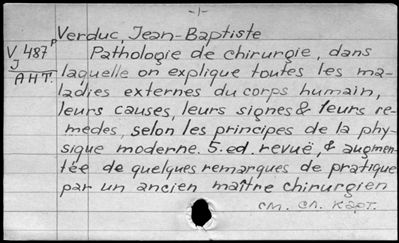 -1-
Verduc, Jean-Baptiste
V 487 p
J
AHT.
Pathologie de chirurgie, dans
laquelle on explique toutes les ma-
ladies externes du corps humain,
leurs causes, leurs signes & leurs re-
mèdes, selon les principes de la phy-
sique moderne. 5. ed. revuë, & augmen-
tée de quelques remarques de pratique
par un ancien maître chirurgien
см. сл. карт.